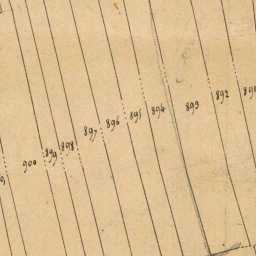 900 899 898 897 896 895 894 893 892